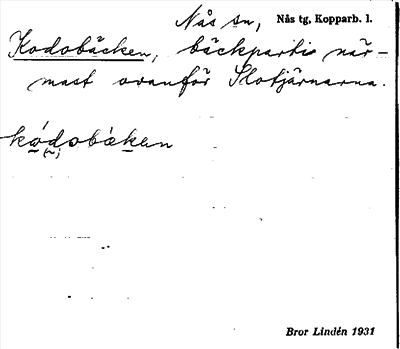 Nås sn, Nås tg, Kopparb. l.
Kodobäcken, bäckparti när-
mast ovanför Slotjärnarna.
kódobäken
Bror Lindén 1931